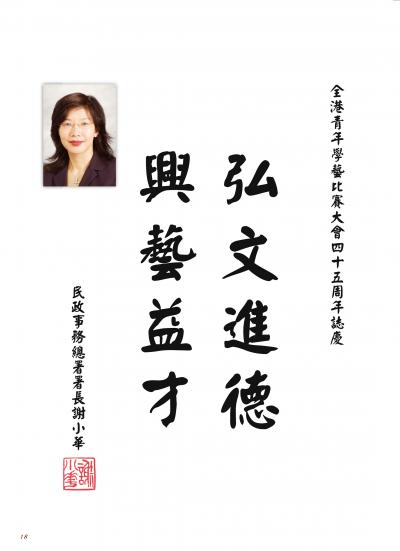 全港青年學藝比賽大會四十五周年誌慶
弘文進德
興藝益才
民政事務總署署長謝小華
謝小華
18